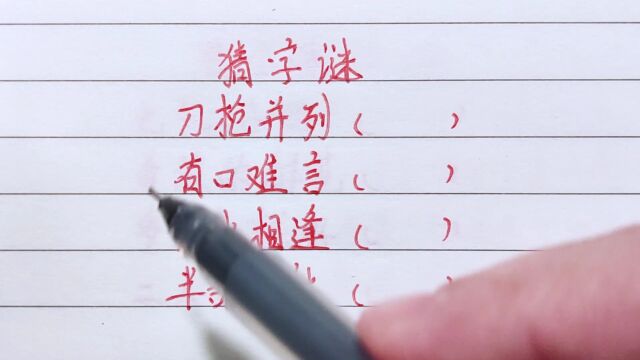 猜字谜
刀枪并列（ ）
有口难言（ ）
相逢（ ）
半（ ）